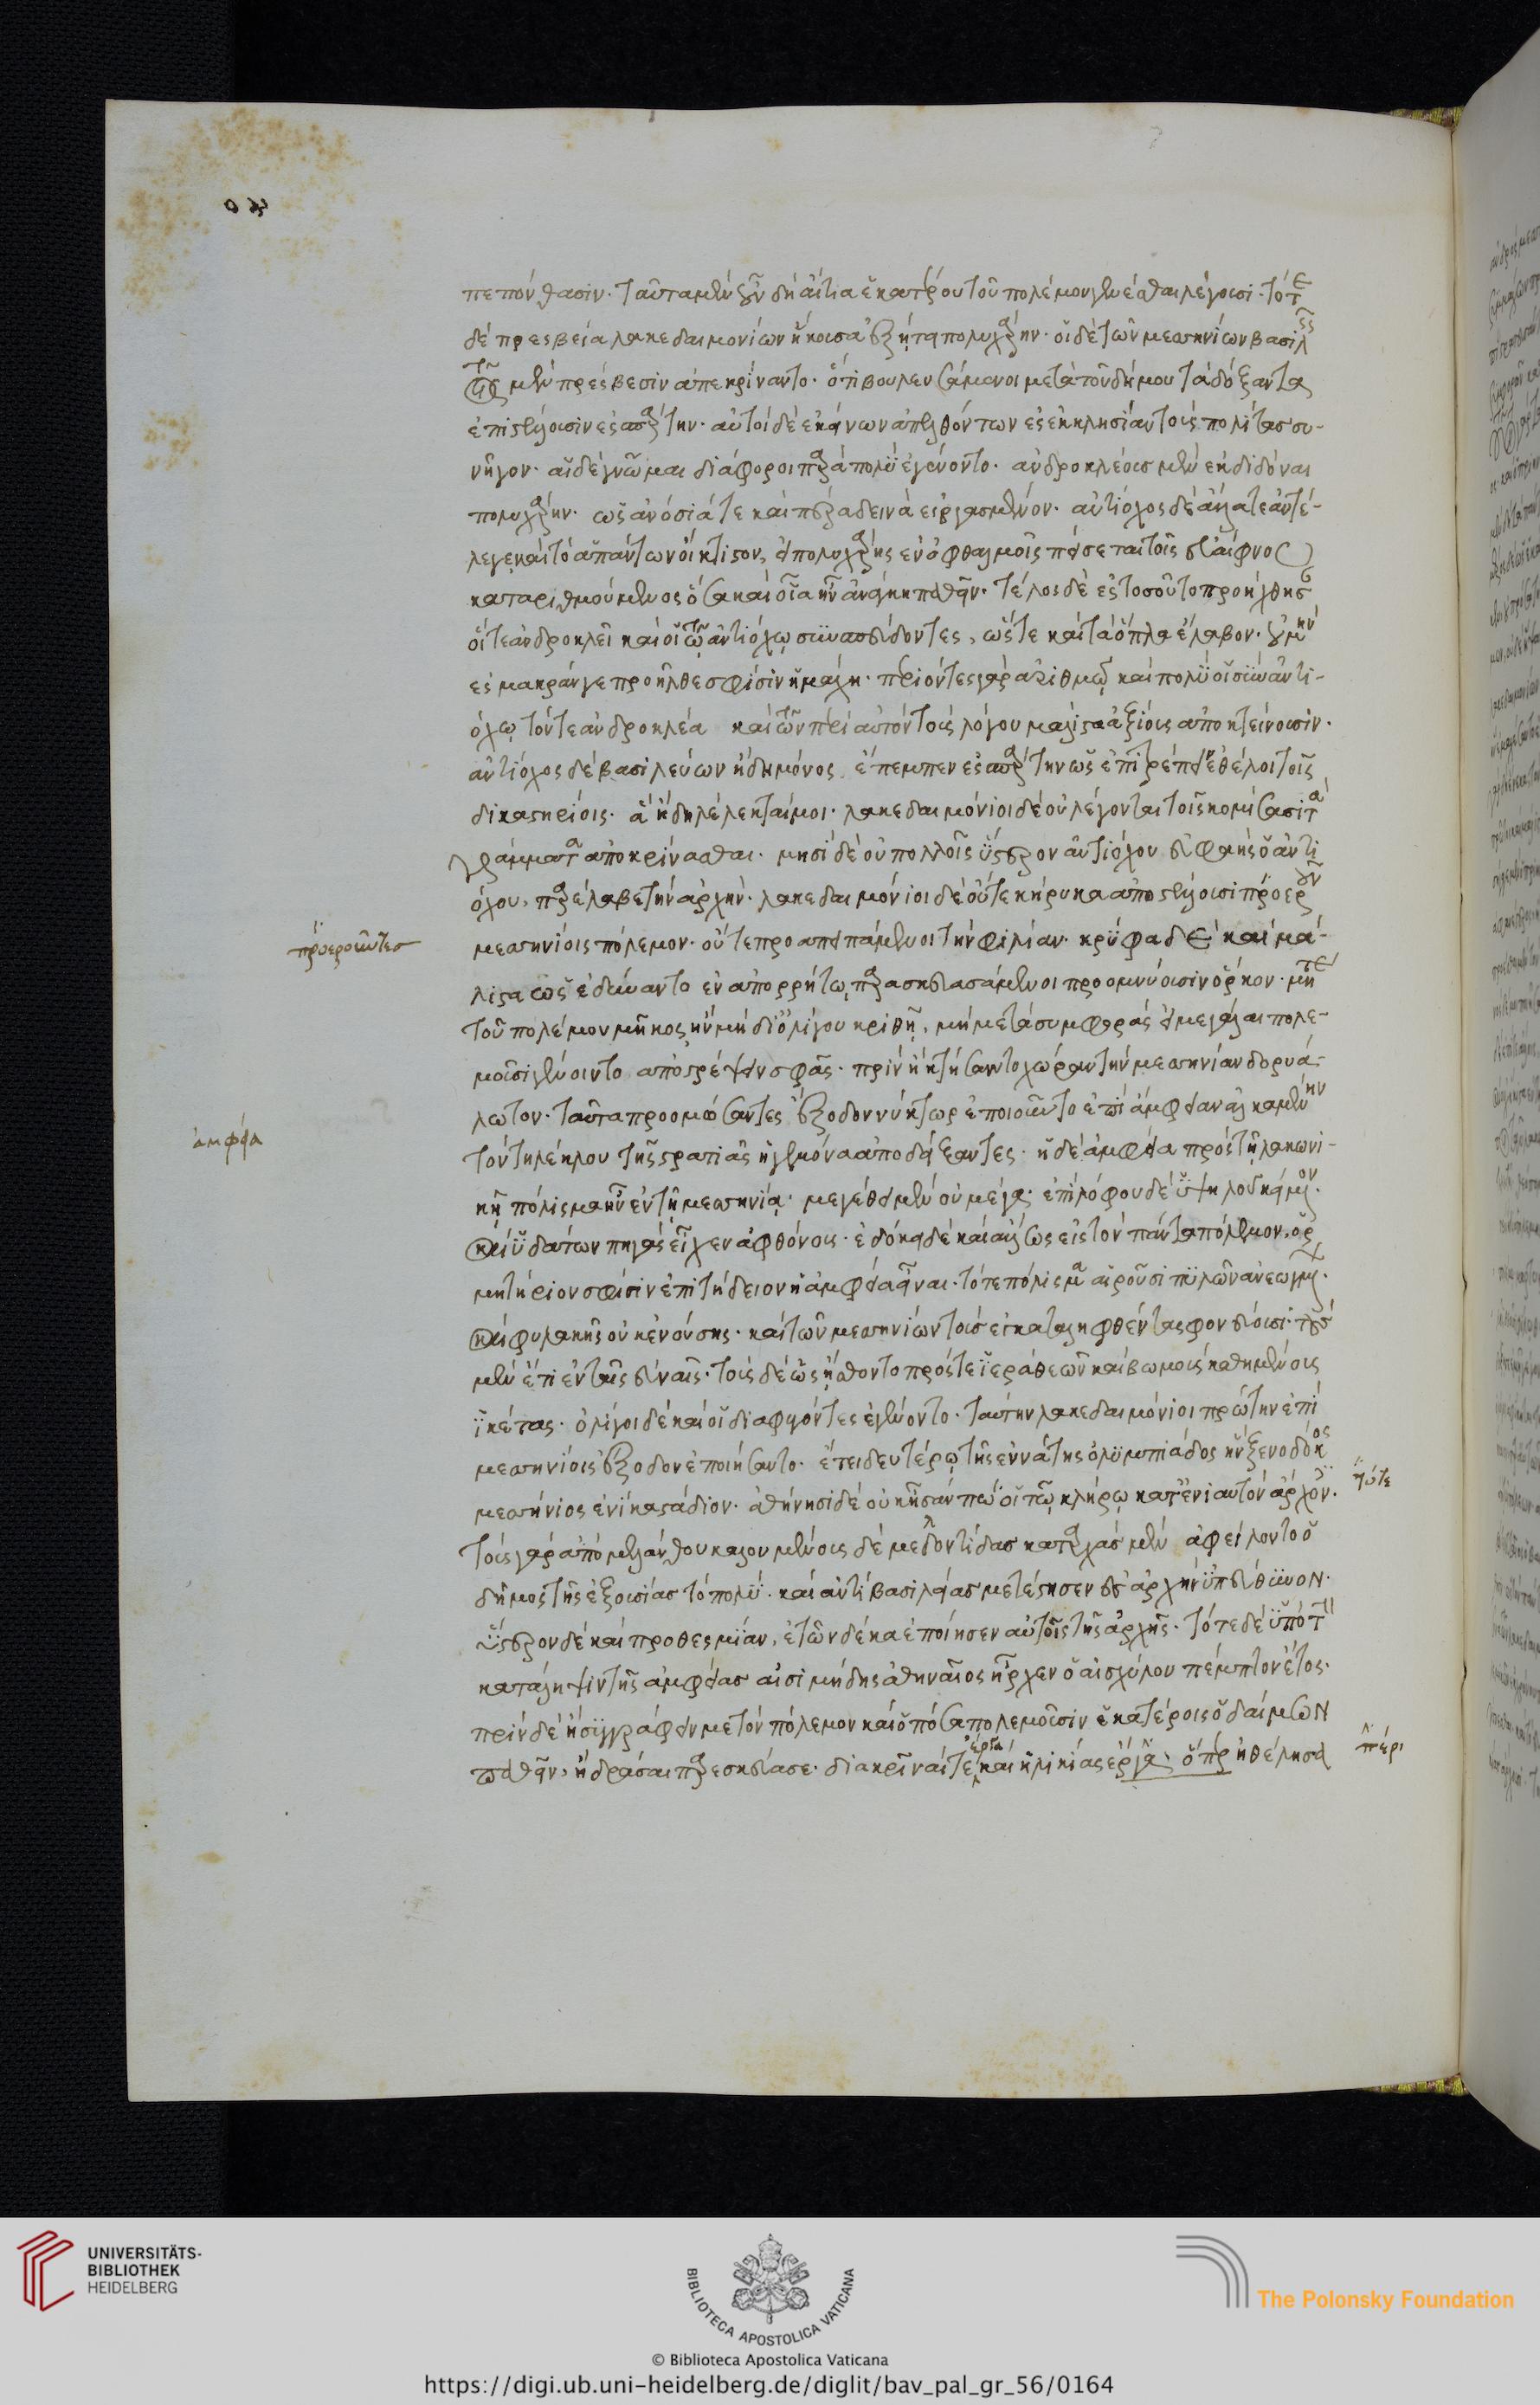 πεπόνθασιν· ταῦτα μὲν οὖν δὴ αἴτια ἑκατέρου τοῦ πολέμου γενέσθαι λέγουσι· τότε
δὲ πρεσβεία λακεδαιμονίων ἥκουσα ἐξήτει πολυχάρην· οἱ δὲ τῶν μεσσηνίων βασιλεῖς
τοῖς μὲν πρέσβεσιν ἀπεκρίναντο· ὅτι βουλευσάμενοι μετὰ τοῦ δήμου τὰ δόξαντα
ἐπιστείλουσιν ἐς σπάρτην· αὐτοὶ δὲ ἐκείνων ἀπελθόντων ἐς ἐκκλησίαν τοὺς πολίτας συ-
νῆγον· αἱ δὲ γνῶμαι διάφοροι παρὰ πολὺ ἐγένοντο· ἀνδροκλέους μὲν ἐκδιδόναι
πολυχάρην· ὡς ἀνόσιά τε καὶ πέρα δεινὰ εἰργασμένον· ἀντίοχος δὲ ἄλλα τε ἀντέ-
λεγε καὶ τὸ ἁπάντων οἴκτιστον, εἰ πολυχάρης ἐν ὀφθαλμοῖς πείσεται τοῖς εὐαίφνους
καταριθμούμενος ὅσα καὶ οἷα ἦν ἀνάγκη παθεῖν· τέλος δὲ ἐς τοσοῦτο προήχθησαν
οἵ τε ἀνδροκλεῖ καὶ οἱ τῷ ἀντιόχῳ συσπεύδοντες, ὥστε καὶ τὰ ὅπλα ἔλαβον· οὐ μὴν
ἐς μακράν γε προῆλθέ σφισιν ἡ μάχη· περιόντες γὰρ ἀριθμῷ καὶ πολὺ οἱ σὺν ἀντι-
όχῳ τόν τε ἀνδροκλέα καὶ τῶν περὶ αὐτὸν τοὺς λόγου μάλιστα ἀξίους ἀποκτείνουσιν·
ἀντίοχος δὲ βασιλεύων ἤδη μόνος ἔπεμπεν ἐς σπάρτην ὡς ἐπιτρέπειν ἐθέλοι τοῖς
δικαστηρίοις· ἃ ἤδη λέλεκταί μοι· λακεδαιμόνιοι δὲ οὐ λέγονται τοῖς κομίσασι τὰ
γράμματα ἀποκρίνασθαι· μησὶ δὲ οὐ πολλοῖς ὕστερον ἀντιόχου εὐφαὴς ὁ ἀντι
όχου, παρέλαβε τὴν ἀρχήν· λακεδαιμόνιοι δὲ οὔτε κήρυκα ἀποστέλλουσι προεροῦν
προεροῦντες
μεσσηνίοις πόλεμον· οὔτε προαπειπάμενοι τὴν φιλίαν· κρύφα δὲ καὶ μά-
λιστα ὡς ἐδύναντο ἐν ἀπορρήτῳ παρασκευασάμενοι προομνύουσιν ὅρκον· μήτε
τοῦ πολέμου μῆκος ἢν μὴ δι' ὀλίγου κριθῇ, μὴ μετὰ συμφορὰς εἰ μεγάλαι πολε-
μοῦσι γένοιντο ἀποστρέψειν σφᾶς· πρὶν ἢ κτήσαιντο χώραν τὴν μεσσηνίαν δορυά-
λωτον· ταῦτα προομόσαντες ἔξοδον νύκτωρ ἐποιοῦντο ἐπὶ ἄμφειαν ἀλκαμένην
ἄμφεια
τὸν τηλέκλου τῆς στρατιᾶς ἡγεμόνα ἀποδείξαντες· ἡ δὲ ἄμφεια πρὸς τῇ λακωνι-
κῇ πόλισμα ἦν ἐν τῇ μεσσηνίᾳ· μεγέθει μὲν οὐ μέγα· ἐπὶ λόφου δὲ ὑψηλοῦ κείμενον·
καὶ ὑδάτων πηγὰς εἶχεν ἀφθόνους· ἐδόκει δὲ καὶ ἄλλως εἰς τὸν πάντα πόλεμον, ὁρ
μητήριόν σφισιν ἐπιτήδειον ἡ ἄμφεια εἶναι· τό τε πόλισμα αἱροῦσι πυλῶν ἀνεωγμένων·
καὶ φυλακῆς οὐκ ἐνούσης· καὶ τῶν μεσσηνίων τοὺς ἐγκαταληφθέντας φονεύουσι· τοὺς
μὲν ἔτι ἐν ταῖς εὐναῖς· τοὺς δὲ ὡς ᾔσθοντο πρός τε ἱερὰ θεῶν καὶ βωμοὺς καθημένους
ἱκέτας· ὀλίγοι δὲ καὶ οἱ διαφυγόντες ἐγένοντο· ταύτην λακεδαιμόνιοι πρώτην ἐπὶ
μεσσηνίους ἔξοδον ἐποιήσαντο· ἔτει δευτέρῳ τῆς ἐννάτης ὀλυμπιάδος ἣν ξενόδοκος
μεσσήνιος ἐνίκα στάδιον· ἀθήνησι δὲ οὐκ ἦσάν πω οἱ τῷ κλήρῳ κατ' ἐνιαυτὸν ἄρχον·
τότε
τοὺς γὰρ ἀπὸ μελάνθου καλουμένους δὲ μεδοντίδας κατ' ἀρχὰς μὲν ἀφείλοντο ὁ
δῆμος τῆς ἐξουσίας τὸ πολύ· καὶ ἀντὶ βασιλείας μετέστησεν ἐς ἀρχὴν ὑπεύθυνον·
ὕστερον δὲ καὶ προθεσμίαν, ἐτῶν δέκα ἐποίησεν αὐτοῖς τῆς ἀρχῆς· τότε δὲ ὑπὸ τὴν
κατάληψιν τῆς ἀμφείας αἰσιμήδης ἀθηναῖος ἦρχεν ὁ αἰσχύλου πέμπτον ἔτος·
πρὶν δὲ ἢ συγγράφειν με τὸν πόλεμον καὶ ὁπόσα πολεμοῦσιν ἑκατέροις ὁ δαίμων
παθεῖν, ἢ δρᾶσαι παρεσκεύασε· διακρῖναί τε ἔργα καὶ ἡλικίας ἔργα, ὅπερ ἠθέλησα
πέρι
UNIVERSITÄTS-
BIBLIOTHEK
HEIDELBERG
BIBLIOTECA APOSTOLICA VATICANA
The Polonsky Foundation
© Biblioteca Apostolica Vaticana
https://digi.ub.uni-heidelberg.de/diglit/bav_pal_gr_56/0164